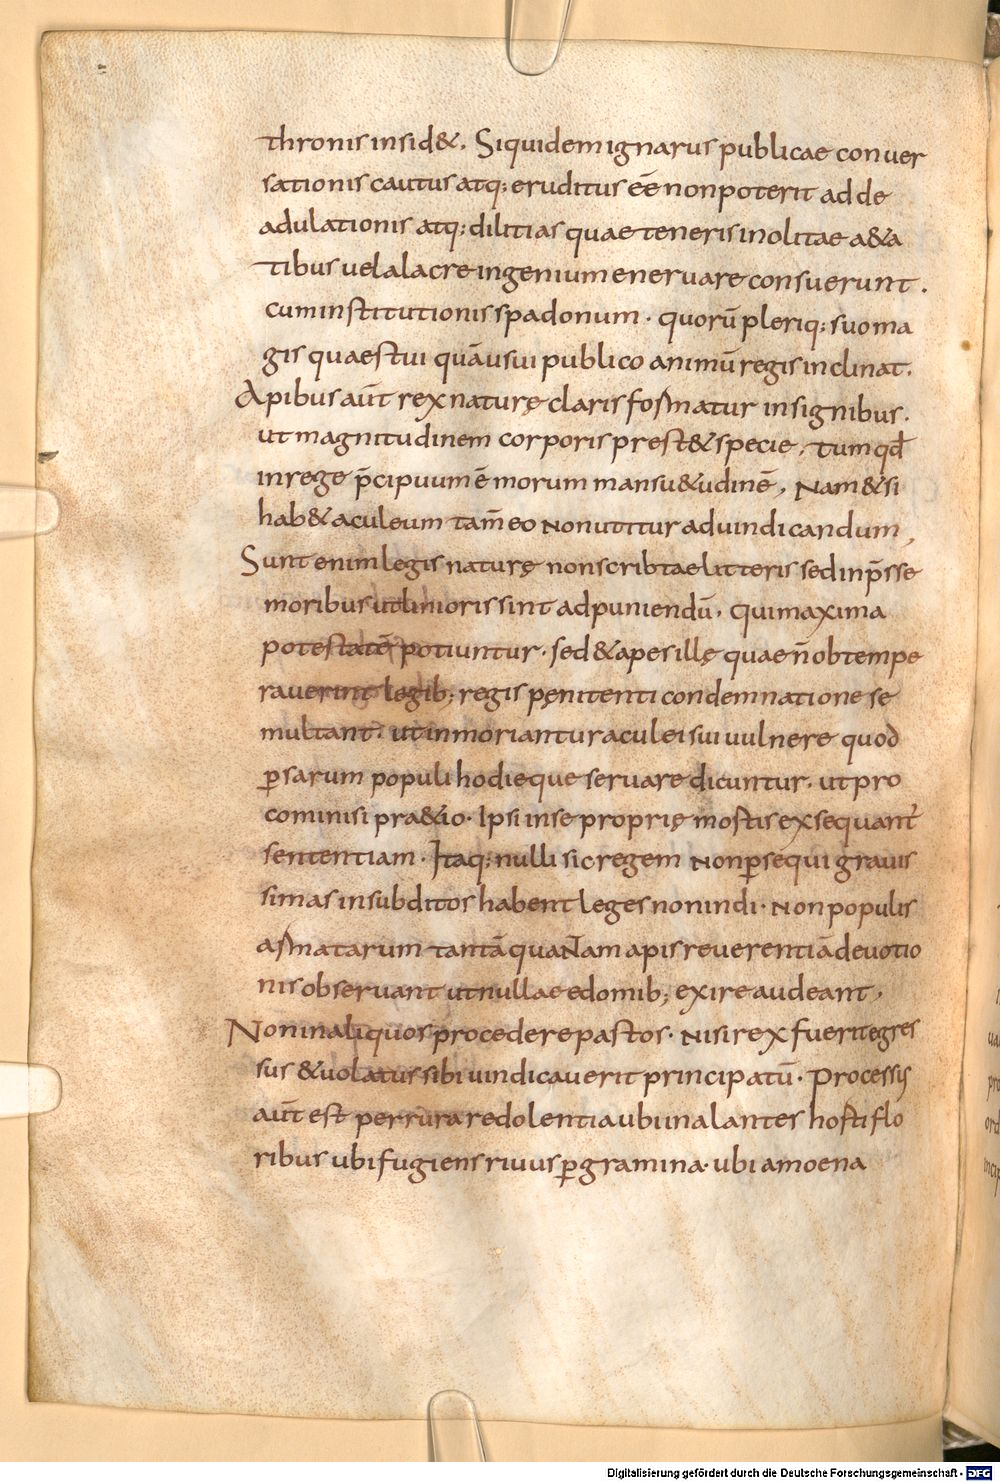 thronis insid&. Siquidem ignarus publicae conuer
sationis cautus atq; eruditus eē non poterit ad de
adulationis atq; dilitias quae teneris inolitae a&a
tibus uel alacre ingenium eneruare consuerunt.
cum institutionis spadonum. quorū pleriq; suo ma
gis quaestui quā usui publico animū regis inclinat.
Apibus aūt rex naturę claris formatur insignibus.
ut magnitudinem corporis prest& specie, tum qd̄
in rege p̄cipuum ē morum mansu&udinē, Nam & si
hab& aculeum tam̄ eo non utitur ad uindicandum,
Sunt enim legis naturę non scribtae litteris sed inp̄sse
moribus ut limoris sint ad puniendū. qui maxima
potestatē potiuntur. sed & apes illę quae n̄ obtempe
rauerint legib; regis pęnitenti condemnatione se
multant. ut inmoriantur aculei sui uulnere quod
p̱sarum populi hodieque seruare dicuntur. ut pro
cominisi pra&io. Ipsi in se proprię mortis exsequant̄
sententiam. Itaq; nulli sic regem non p̱sequi grauis
simas in subditos habent leges non indi. non populis
armatarum tantā quaNam apis reuerentiā deuotio
nis obseruant ut nullae e domib; exire audeant.
Non in aliquos procedere pastos. nisi rex fuerit egres
sus & uolatus sibi uindicauerit principatū. Processis
aūt est per rura redolentia ubi inalantes horti flo
ribus ubi fugiens riuus p̱ gramina. ubi amoena
Digitalisierung gefördert durch die Deutsche Forschungsgemeinschaft - DFG